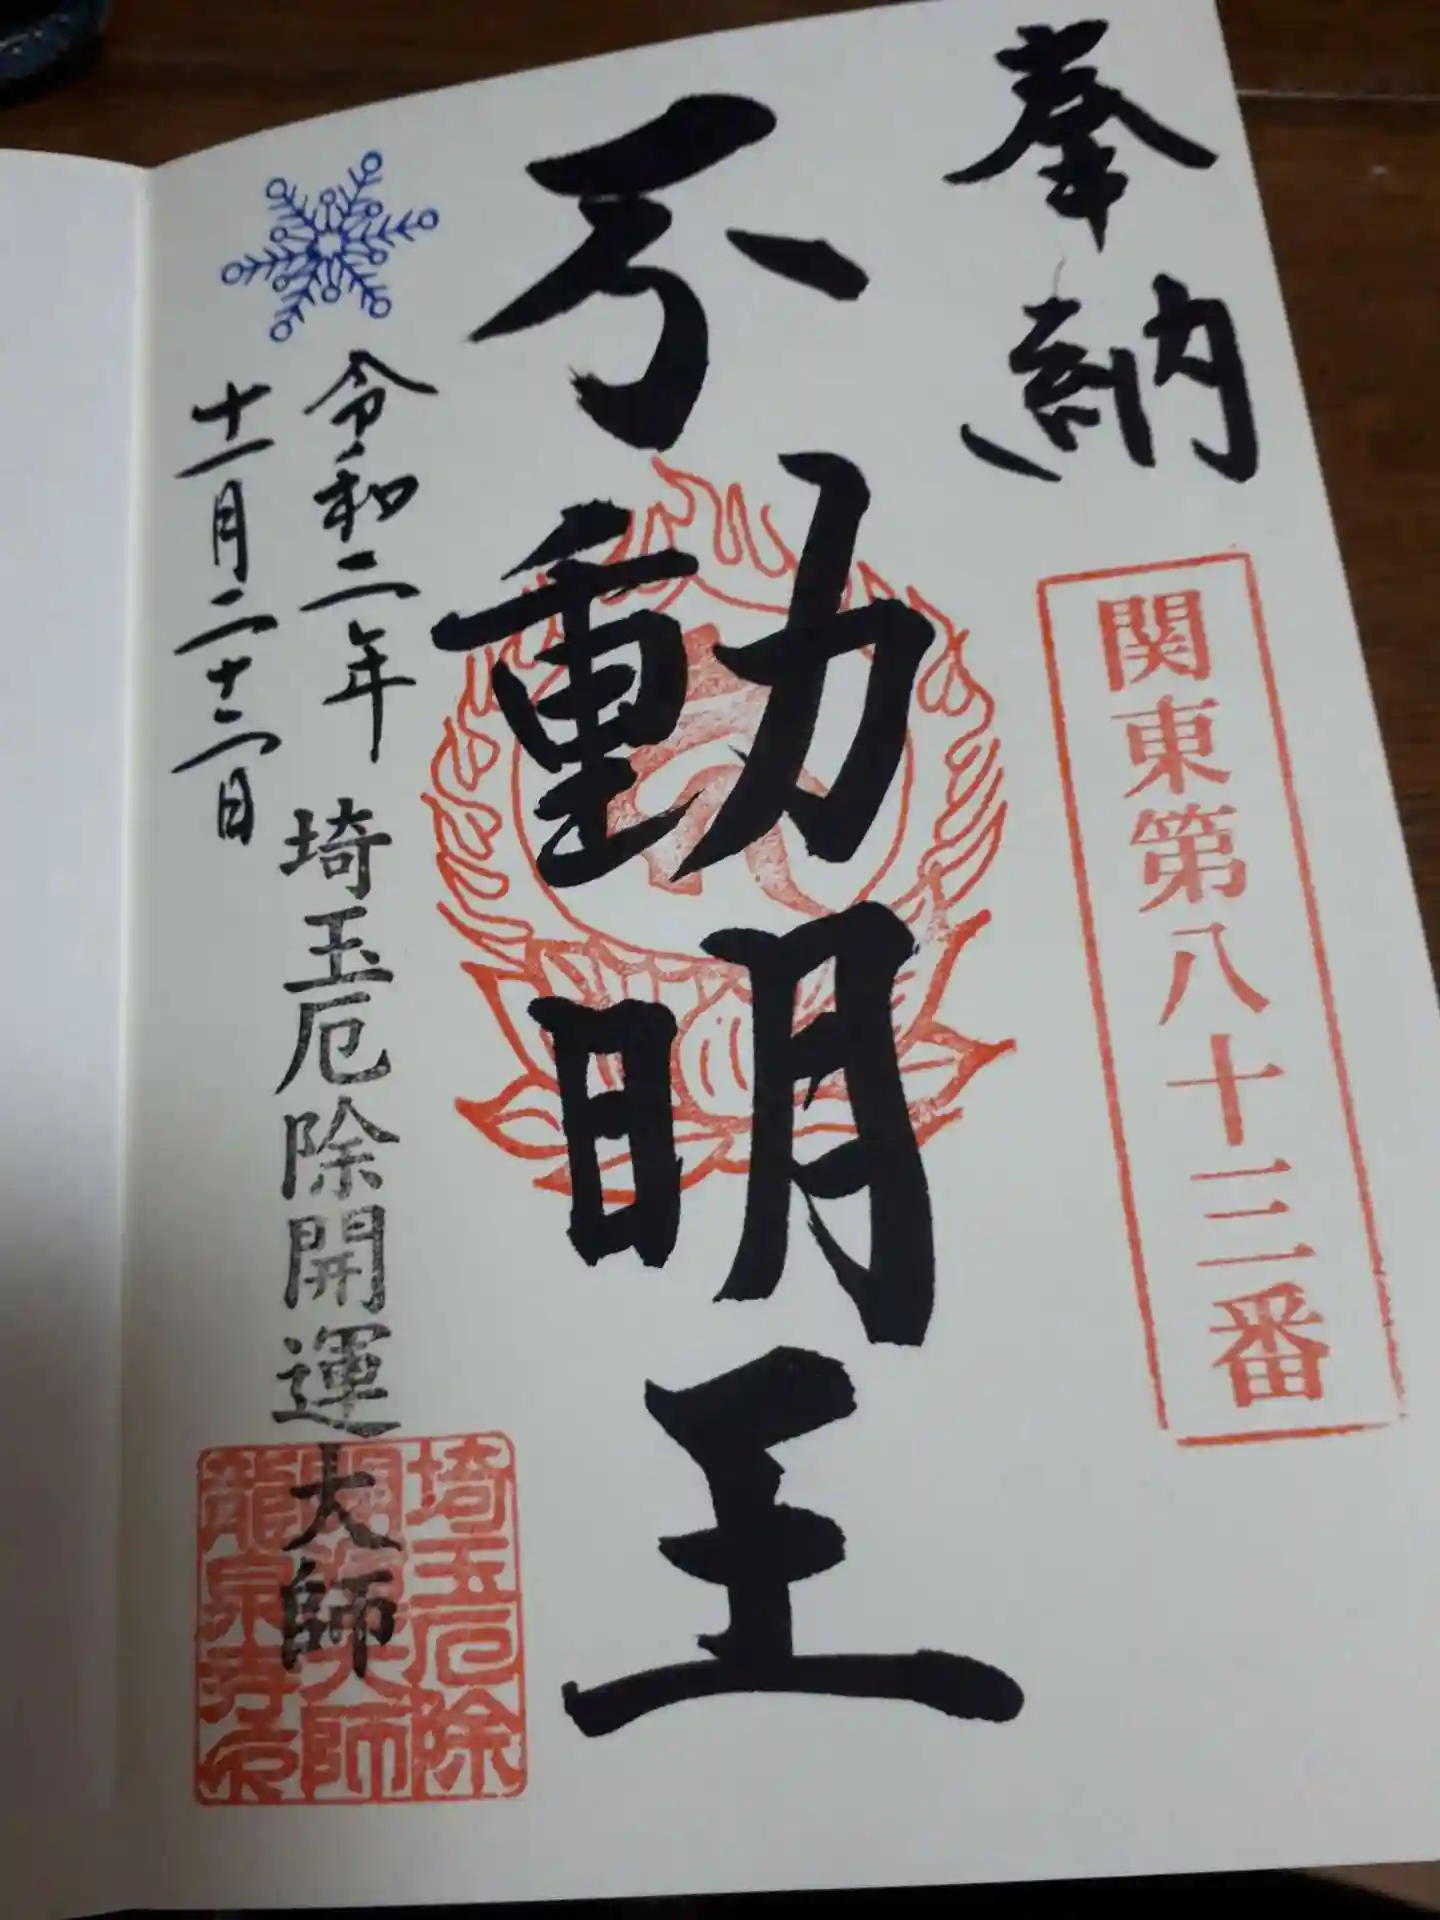 奉納
関東第八十三番
不動明王
令和二年
十一月二十二日
埼玉厄除開運大師
埼玉厄除
開運大師
龍泉寺印